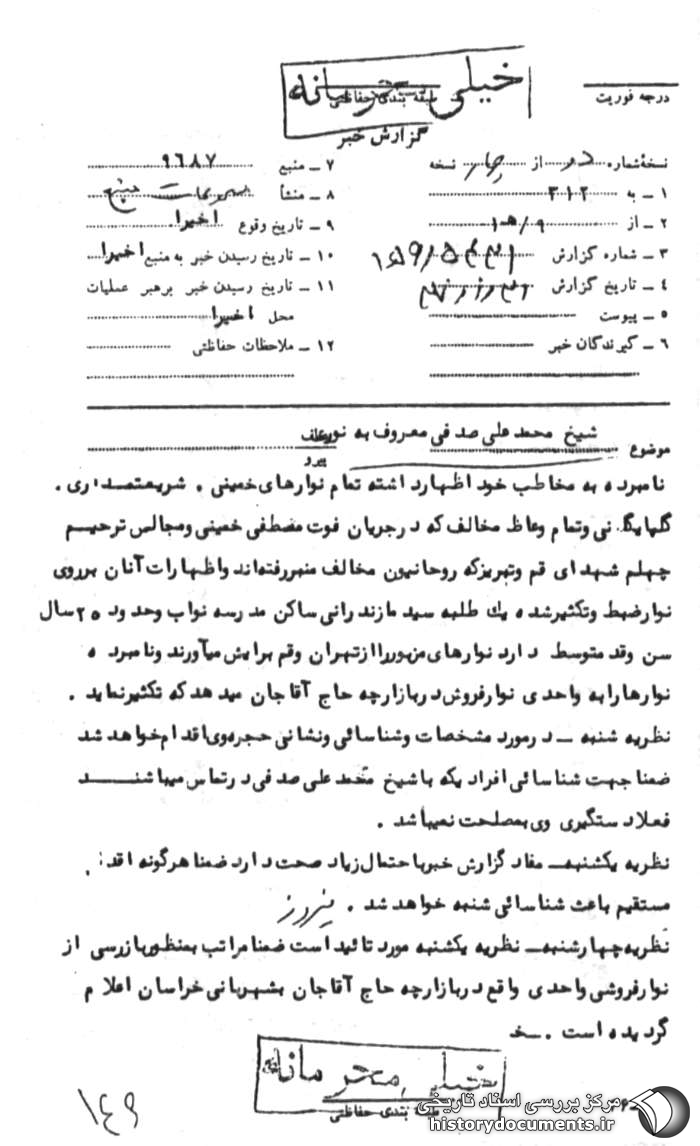 خیلی محرمانه
طبقه بندی حفاظتی
درجه فوریت
گزارش خبر
نسخهٔ شماره دو از چهار نسخه
۱ ــ به ۳۱۲
۲ ــ از ۹/ه‍ ۱
۳ ــ شماره گزارش
۴ ــ تاریخ گزارش
۵ ــ پیوست
۶ ــ گیرندگان خبر
۷ ــ منبع ۹۶۸۷
۸ ــ منشأ منبع
۹ ــ تاریخ وقوع اخیرا
۱۰ ــ تاریخ رسیدن خبر به منبع اخیرا
۱۱ ــ تاریخ رسیدن خبر برهبر عملیات
محل اخیرا
۱۲ ــ ملاحظات حفاظتی
موضوع شیخ محمد علی صدفی معروف به نور
پیرو
نامبرده به مخاطب خود اظهارداشته تمام نوارهای خمینی . شریعتمداری .
گلپایگانی وتمام وعاظ مخالف که درجریان فوت مصطفی خمینی ومجالس ترحیم
چهلم شهدای قم وتبریزکه روحانیون مخالف منبررفته‌اند واظهارات آنان برروی
نوارضبط وتکثیرشده یك طلبه سید مازندرانی ساکن مدرسه نواب وحدود ۲۵ سال
سن وقد متوسط دارد نوارهای مزبوررا ازتهران وقم برایش میآورند ونامبرده
نوارهارا به واحدی نوارفروش دربازارچه حاج آقاجان میدهد که تکثیرنماید .
نظریه شنبه ــ درمورد مشخصات وشناسائی ونشانی حجره وی اقدام خواهد شد
ضمنا جهت شناسائی افرادیکه باشیخ محمد علی صدفی درتماس میباشند
فعلا دستگیری وی بمصلحت نمیباشد .
نظریه یکشنبه ــ مفاد گزارش خبرباحتمال زیاد صحت دارد ضمنا هرگونه اقد
مستقیم باعث شناسائی شنبه خواهد شد . پیروز
نظریه چهارشنبه ــ نظریه یکشنبه مورد تائید است ضمنا مراتب بمنظوربازرسی از
نوارفروشی واحدی واقع دربازارچه حاج آقاجان بشهربانی خراسان اعلام
گردیده است .
خیلی محرمانه
طبقه بندی حفاظتی
۱۴۹
مرکز بررسی اسناد تاریخی
historydocuments.ir